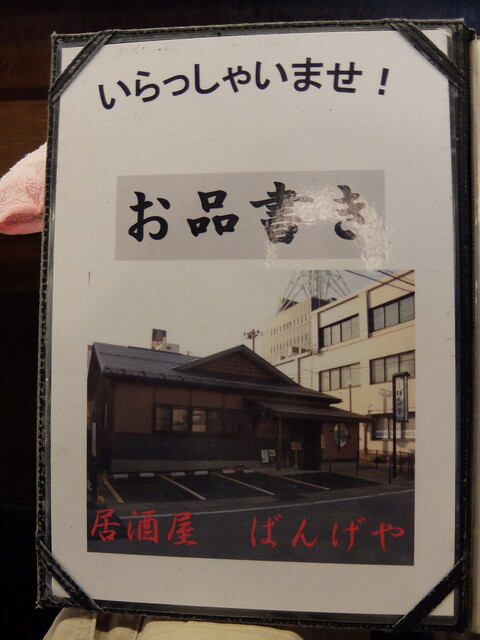 いらっしゃいませ！
お品書き
居酒屋　ばんげや